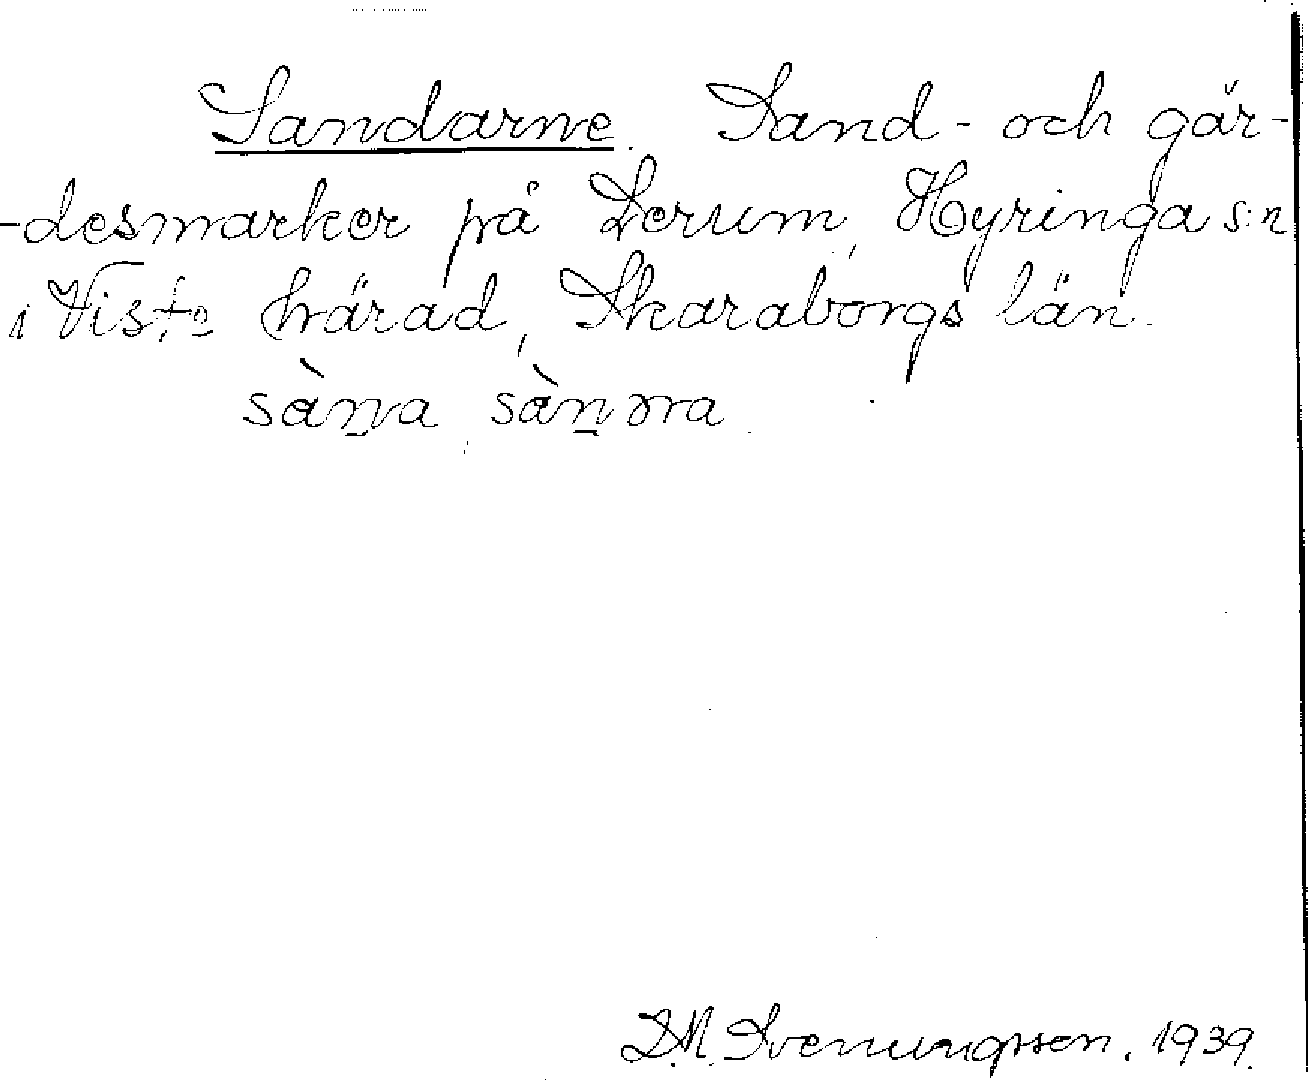 Sandarne. Sand- och gär-
-desmarker på Lerum, Hyringa s:n
i Viste härad, Skaraborgs län.
sàn̲a, sàn̲ɔra.
D.M. Svenungsson. 1939.